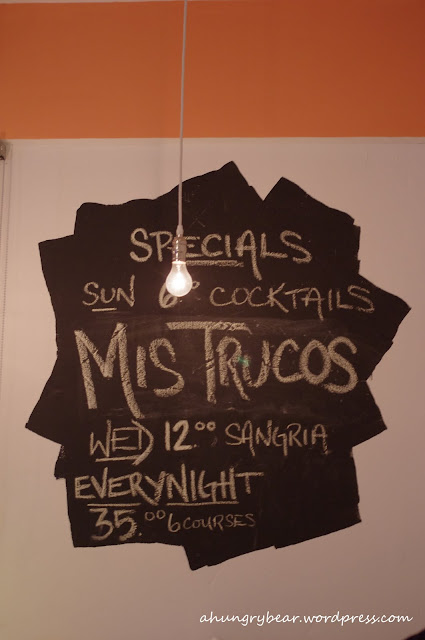 SPECIALS
SUN 6.00 COCKTAILS
MIS TRUCOS
WED 12.00 SANGRIA
EVERYNIGHT
35.00 6 COURSES
ahungrybear.wordpress.com